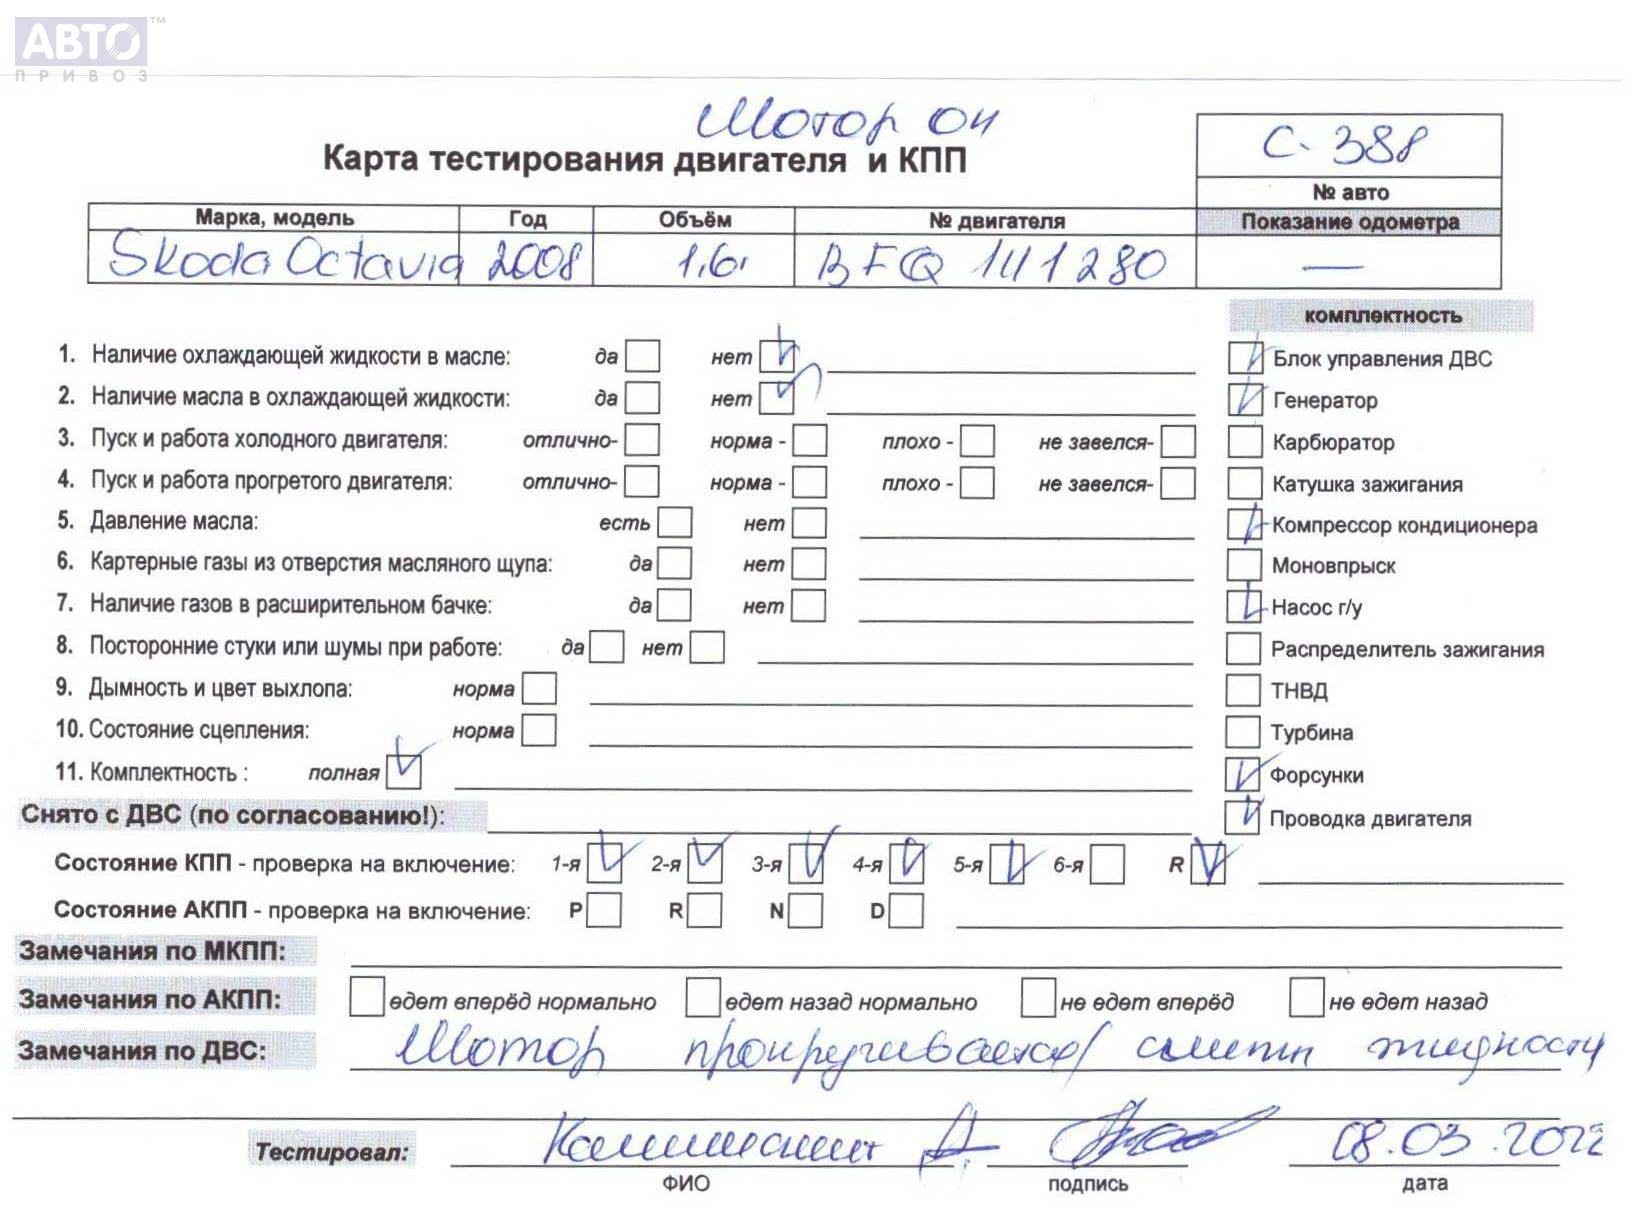 АВТО™
ПРИВОЗ
Мотор ОК
Карта тестирования двигателя и КПП
С-388
№ авто
Марка, модель Год Объём № двигателя Показание одометра
Skoda Octavia 2008 1,6i BFQ 141280 —
комплектность
1. Наличие охлаждающей жидкости в масле: да нет
Блок управления ДВС
2. Наличие масла в охлаждающей жидкости: да нет
Генератор
3. Пуск и работа холодного двигателя: отлично- норма - плохо - не завелся-
Карбюратор
4. Пуск и работа прогретого двигателя: отлично- норма - плохо - не завелся-
Катушка зажигания
5. Давление масла: есть нет
Компрессор кондиционера
6. Картерные газы из отверстия масляного щупа: да нет
Моновпрыск
7. Наличие газов в расширительном бачке: да нет
Насос г/у
8. Посторонние стуки или шумы при работе: да нет
Распределитель зажигания
9. Дымность и цвет выхлопа: норма
ТНВД
10. Состояние сцепления: норма
Турбина
11. Комплектность : полная
Форсунки
Снято с ДВС (по согласованию!):
Проводка двигателя
Состояние КПП - проверка на включение: 1-я 2-я 3-я 4-я 5-я 6-я R
Состояние АКПП - проверка на включение: P R N D
Замечания по МКПП:
Замечания по АКПП: едет вперёд нормально едет назад нормально не едет вперёд не едет назад
Замечания по ДВС: Мотор прокручивается/ слиты жидкости
Тестировал: А. 08.03.2022
ФИО подпись дата